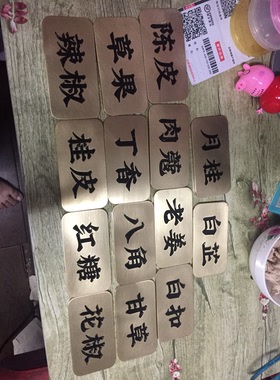 辣椒
草果
陈皮
桂皮
丁香
肉蔻
月桂
红糖
八角
老姜
白芷
花椒
甘草
白扣